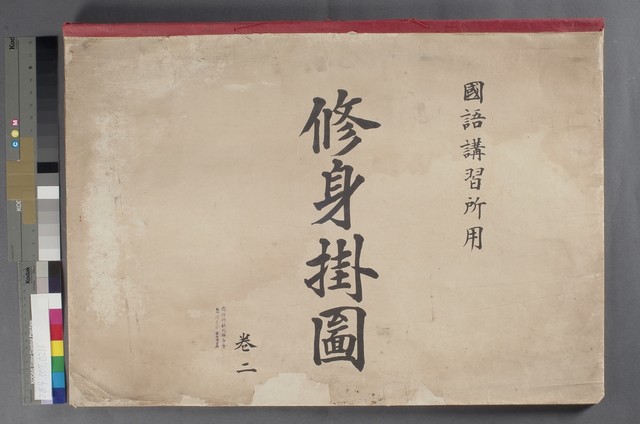 國語講習所用
修身掛圖
卷二
Kodak